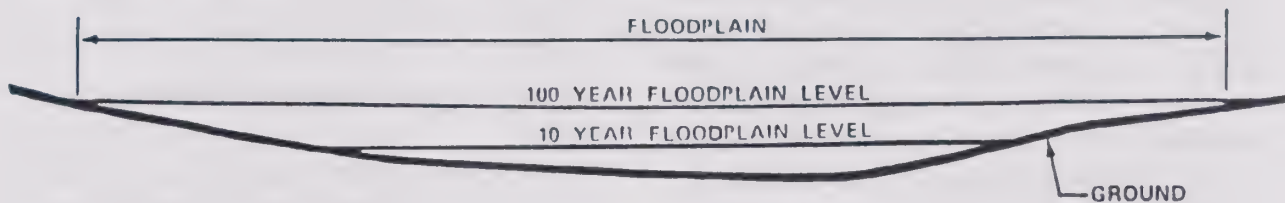 FLOODPLAIN
100 YEAR FLOODPLAIN LEVEL
10 YEAR FLOODPLAIN LEVEL
GROUND